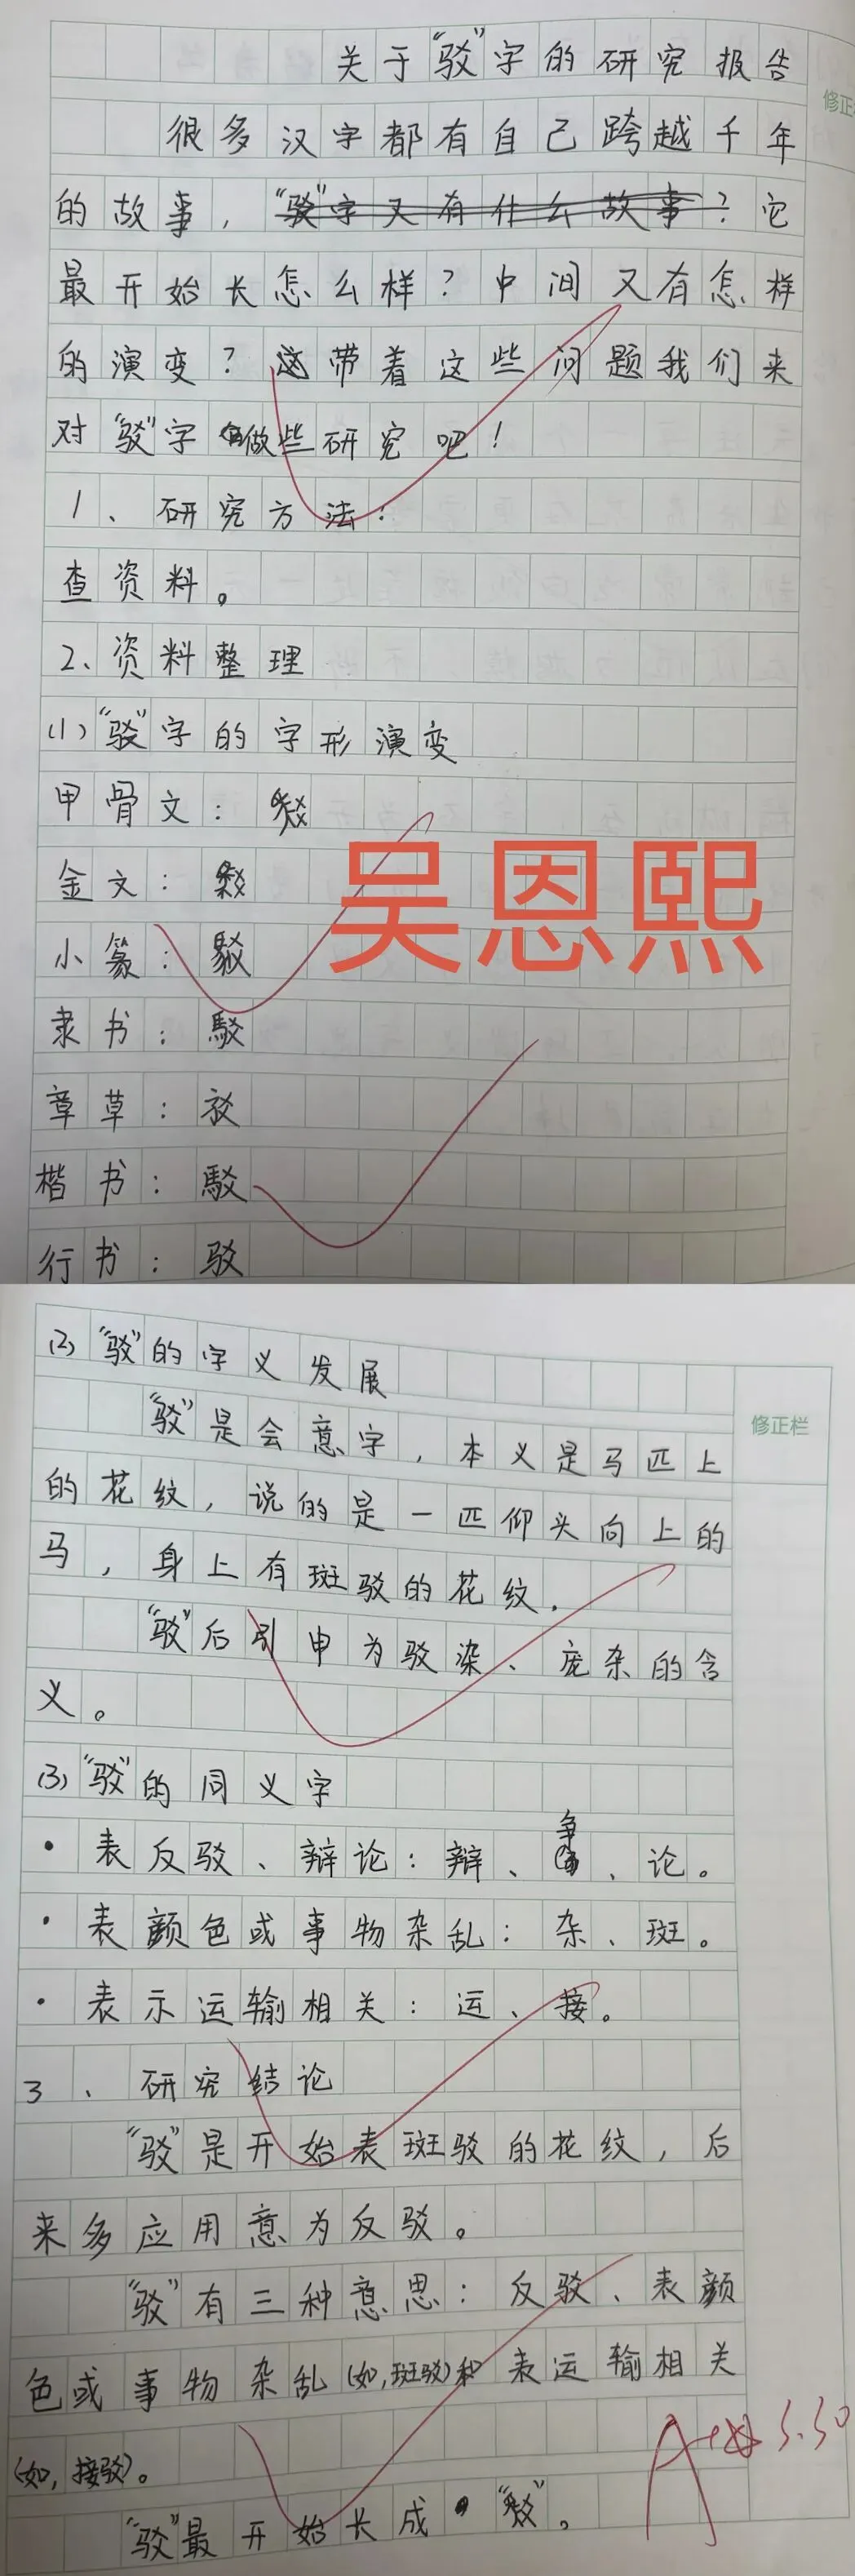 关于“驳”字的研究报告
修正
很多汉字都有自己跨越千年
的故事，“驳”字又有什么故事？它
最开始长怎么样？中间又有怎样
的演变？带着这些问题我们来
对“驳”字做些研究吧！
1、研究方法：
查资料。
2、资料整理
(1)“驳”字的字形演变
甲骨文：
金文：
吴恩熙
小篆：駁
隶书：駁
章草：
楷书：駁
行书：驳
(2)“驳”的字义发展
“驳”是会意字，本义是马匹上
修正栏
的花纹，说的是一匹仰头向上的
马，身上有斑驳的花纹。
“驳”后引申为驳染、庞杂的含
义。
(3)“驳”的同义字
·表反驳、辩论：辩、争、论。
·表颜色或事物杂乱：杂、斑。
·表示运输相关：运、接。
3、研究结论
“驳”是开始表斑驳的花纹，后
来多应用意为反驳。
“驳”有三种意思：反驳、表颜
色或事物杂乱(如,斑驳)和表运输相关
(如,接驳)。
A+ 5.30
“驳”最开始长成“”。